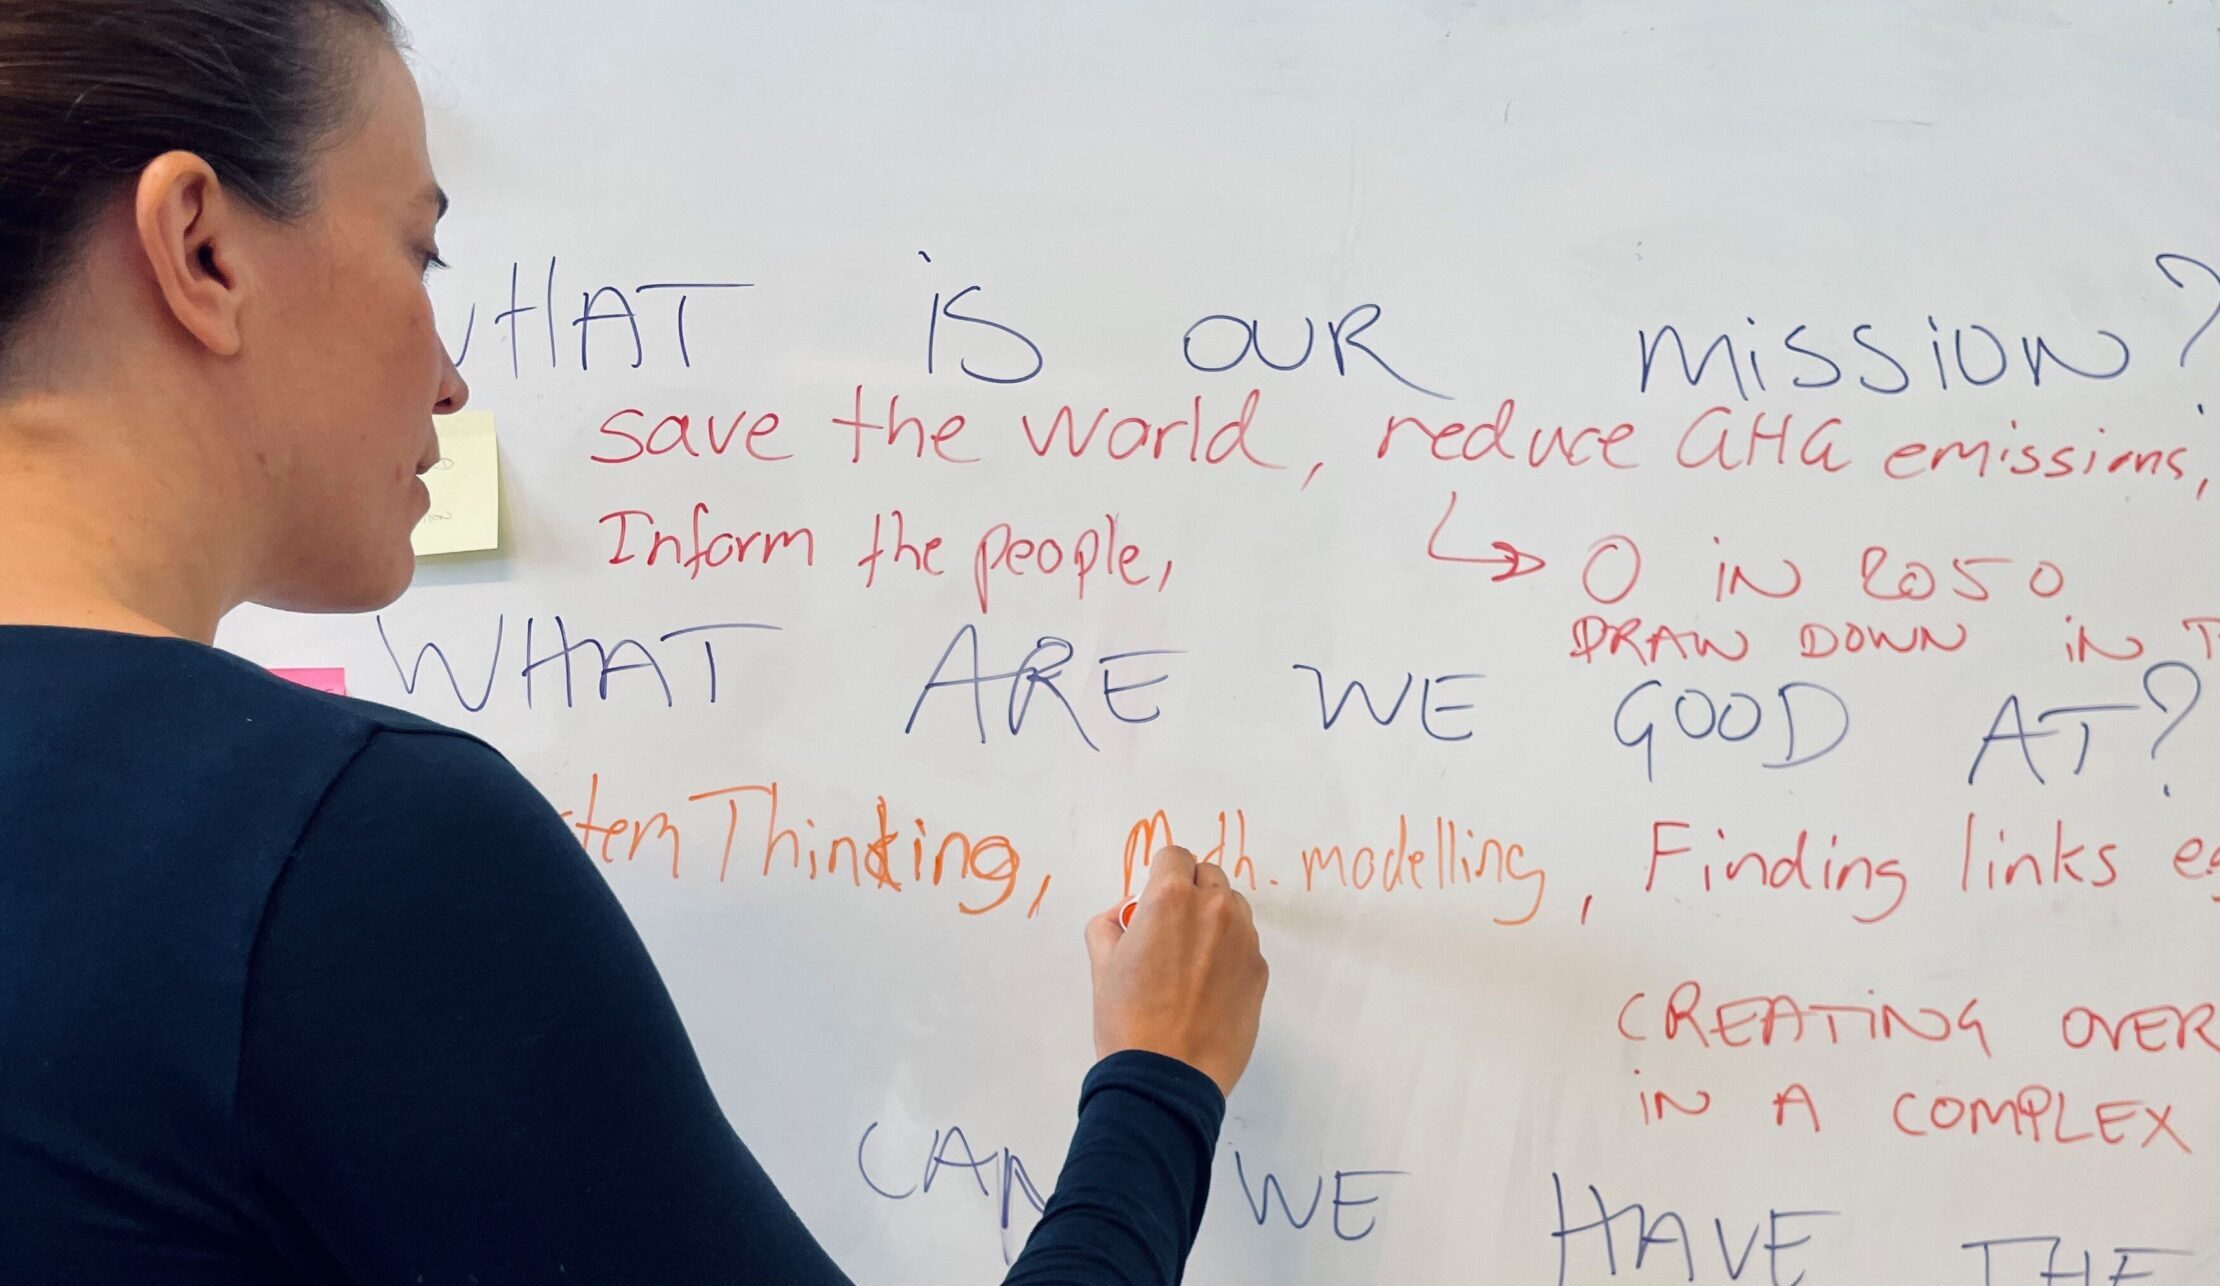 WHAT iS OUR MiSSiON?
save the world, reduce GHG emissions,
Inform the people,
0 iN 2050
DRAW DOWN iN
WHAT ARE WE GOOD AT?
Thinking, Math. modelling, Finding links
CREATiNG OVER
iN A COMPLEX
CAN WE HAVE THE